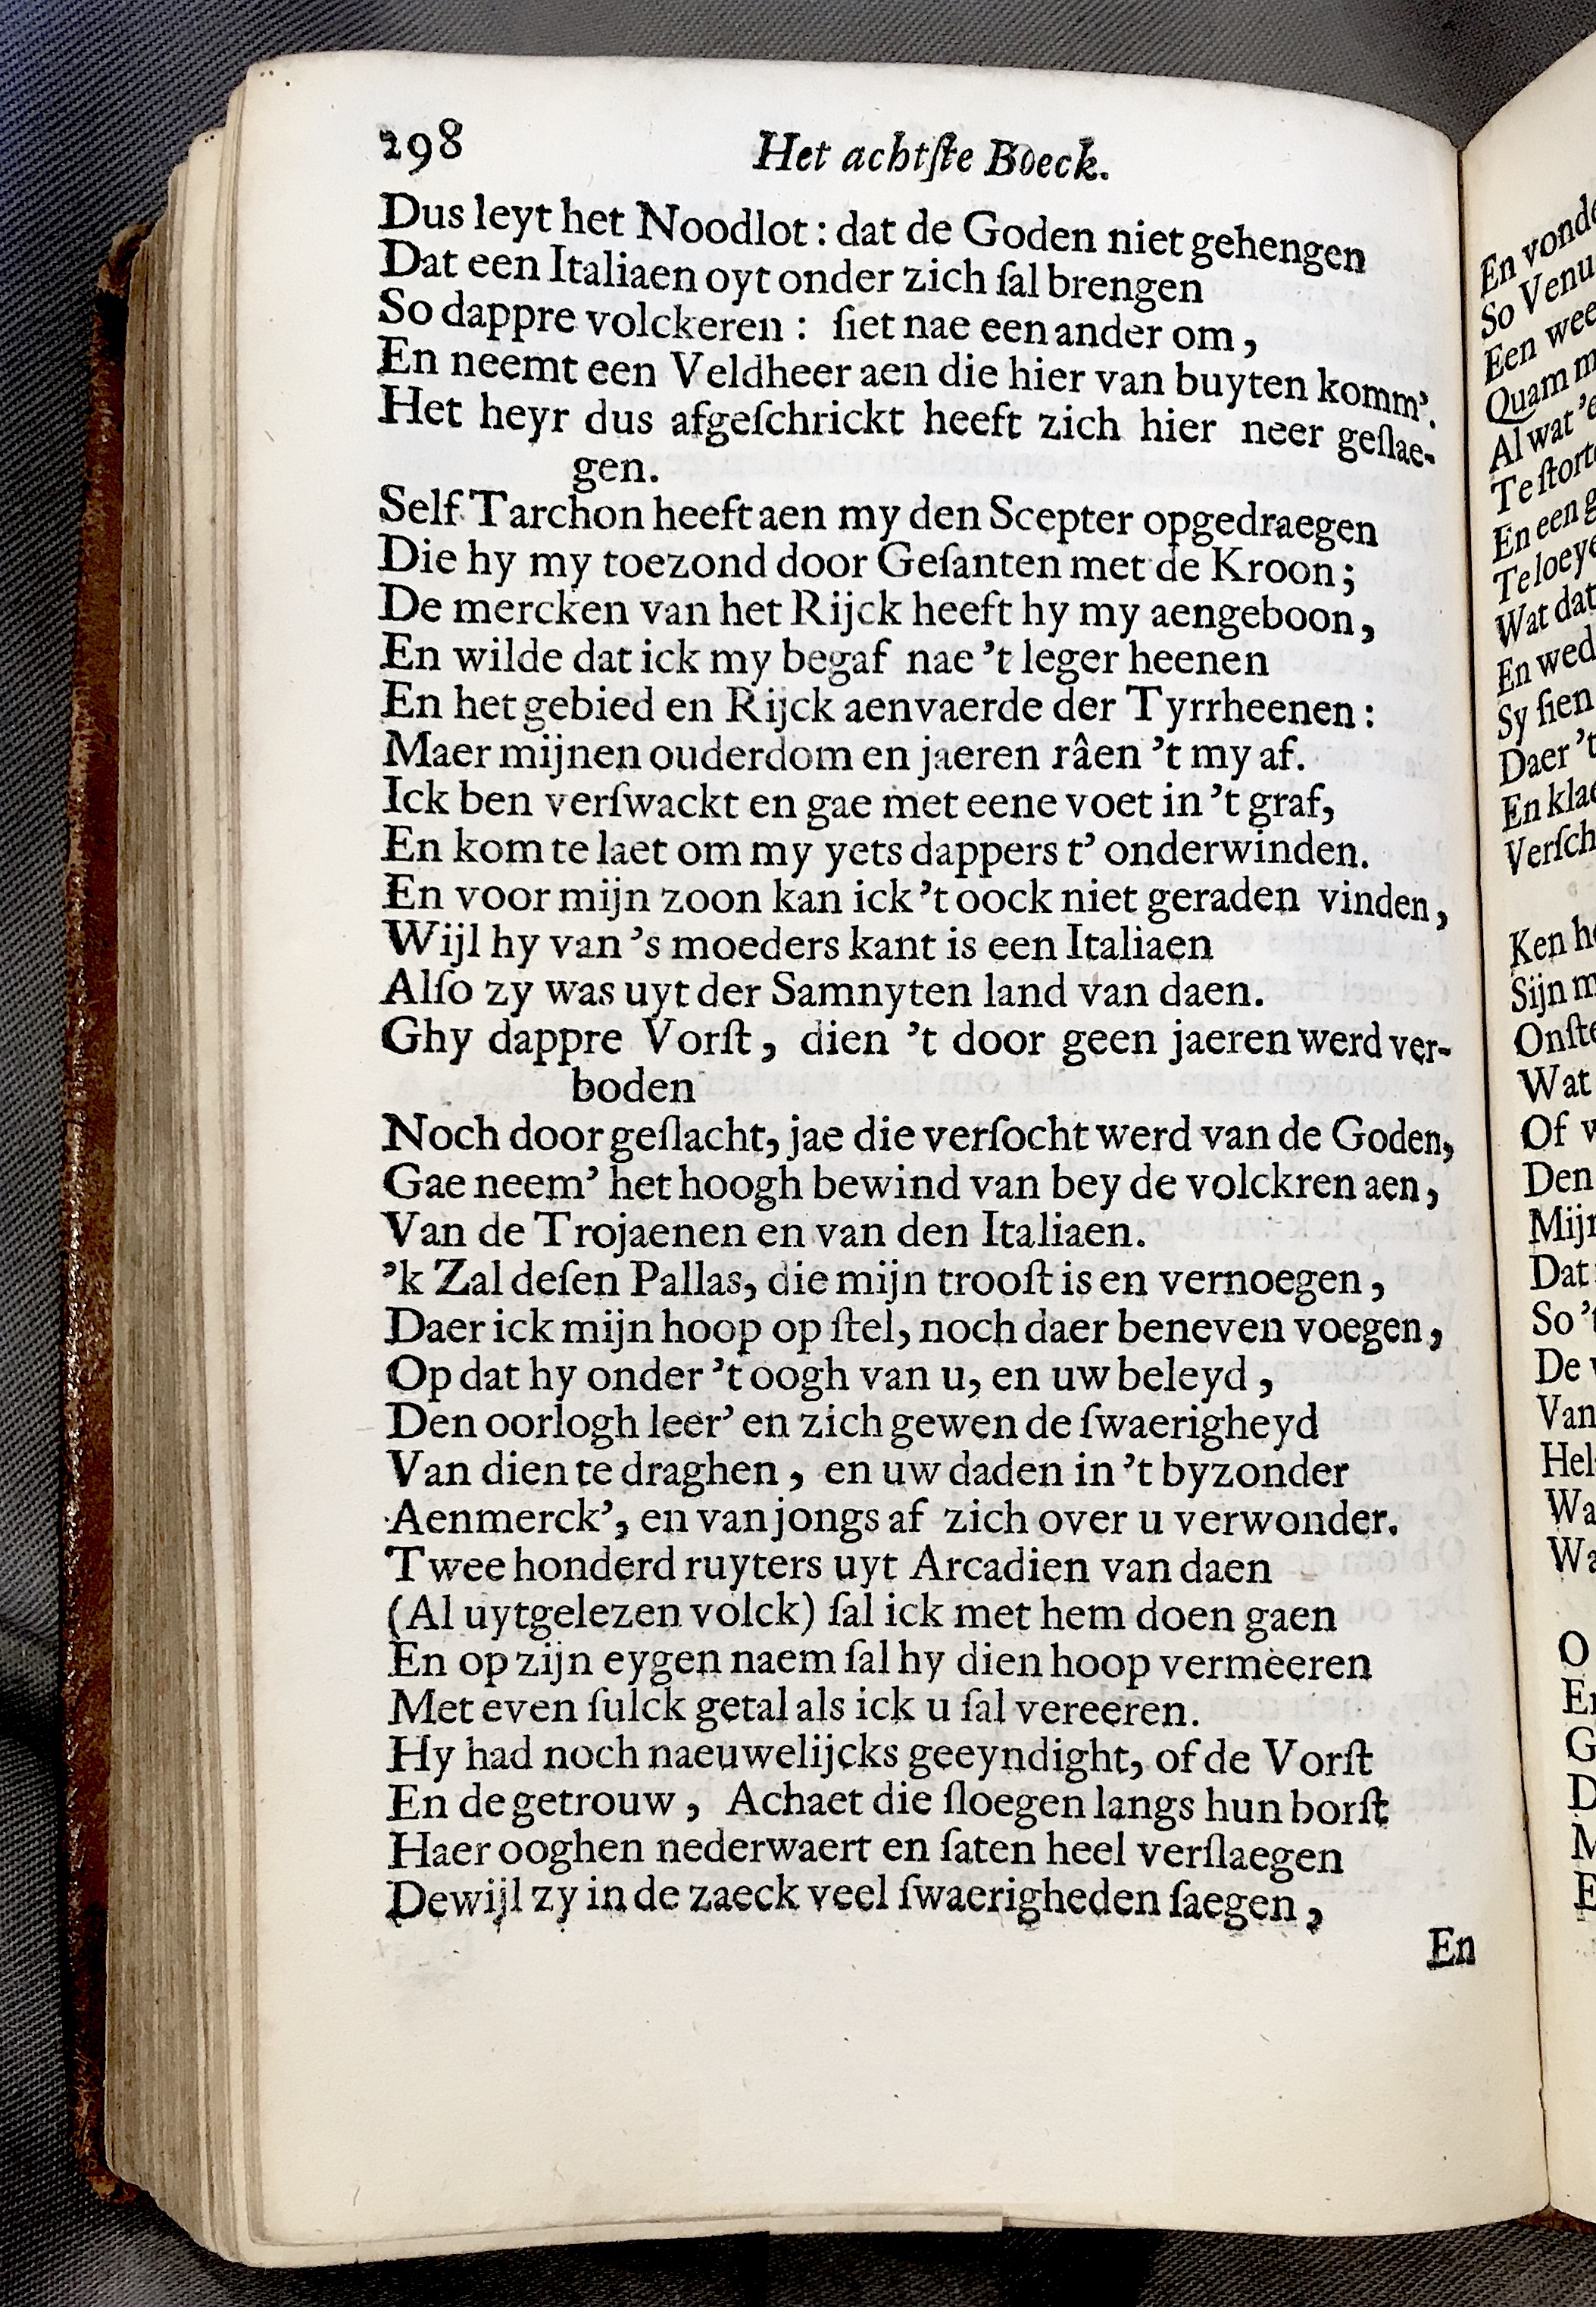 298 Het achtſte Boeck.
Dus leyt het Noodlot: dat de Goden niet gehengen
Dat een Italiaen oyt onder zich ſal brengen
So dappre volckeren: ſiet nae een ander om,
En neemt een Veldheer aen die hier van buyten komm'.
Het heyr dus afgeſchrickt heeft zich hier neer geſlae-
gen.
Self Tarchon heeft aen my den Scepter opgedraegen
Die hy my toezond door Geſanten met de Kroon;
De mercken van het Rijck heeft hy my aengeboon,
En wilde dat ick my begaf nae 't leger heenen
En het gebied en Rijck aenvaerde der Tyrrheenen:
Maer mijnen ouderdom en jaeren râen 't my af.
Ick ben verſwackt en gae met eene voet in 't graf,
En kom te laet om my yets dappers t' onderwinden.
En voor mijn zoon kan ick 't oock niet geraden vinden,
Wijl hy van 's moeders kant is een Italiaen
Alſo zy was uyt der Samnyten land van daen.
Ghy dappre Vorſt, dien 't door geen jaeren werd ver-
boden
Noch door geſlacht, jae die verſocht werd van de Goden,
Gae neem' het hoogh bewind van bey de volckren aen,
Van de Trojaenen en van den Italiaen.
'k Zal deſen Pallas, die mijn trooſt is en vernoegen,
Daer ick mijn hoop op ſtel, noch daer beneven voegen,
Op dat hy onder 't oogh van u, en uw beleyd,
Den oorlogh leer' en zich gewen de ſwaerigheyd
Van dien te draghen, en uw daden in 't byzonder
Aenmerck', en van jongs af zich over u verwonder.
Twee honderd ruyters uyt Arcadien van daen
(Al uytgelezen volck) ſal ick met hem doen gaen
En op zijn eygen naem ſal hy dien hoop vermeeren
Met even ſulck getal als ick u ſal vereeren.
Hy had noch naeuwelijcks geeyndight, of de Vorſt
En de getrouw, Achaet die ſloegen langs hun borſt
Haer ooghen nederwaert en ſaten heel verſlaegen
Dewijl zy in de zaeck veel ſwaerigheden ſaegen,
En
En
So Venu
Een wee
Quam m
Al wat 'e
Te ſtort
En een g
Te loeye
Wat dat
En wed
Sy ſien
Daer 't
En klae
Verſch
Ken h
Sijn m
Onſte
Wat
Of
Den
Mijn
Dat
So 't
De
Van
Hel
Wa
Wa
O